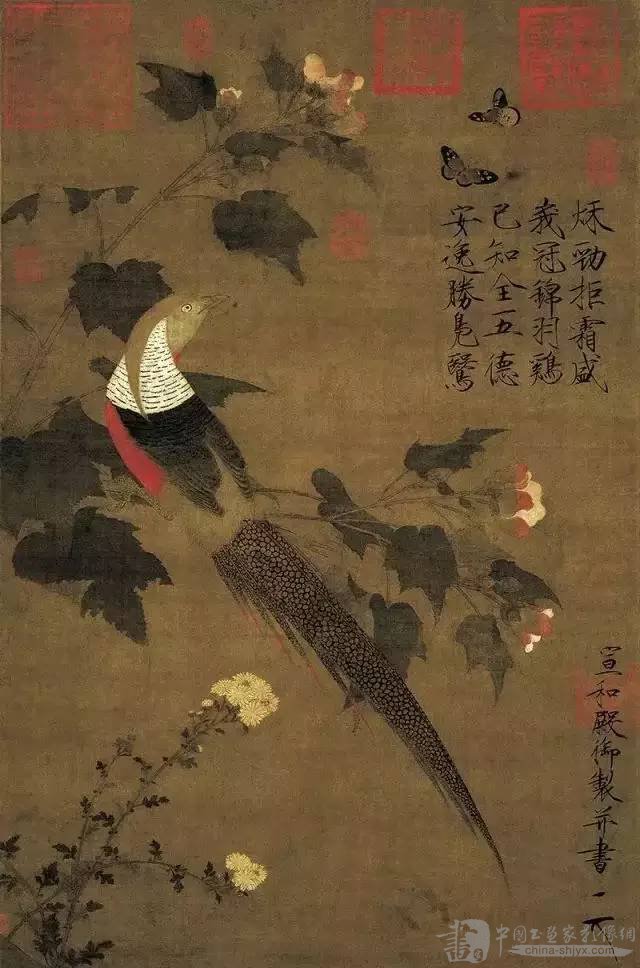 秋勁拒霜盛
峩冠錦羽鷄
已知全五德
安逸勝鳧鷖
宣和殿御製并書
中國书画家影像網
china-shjyx.com